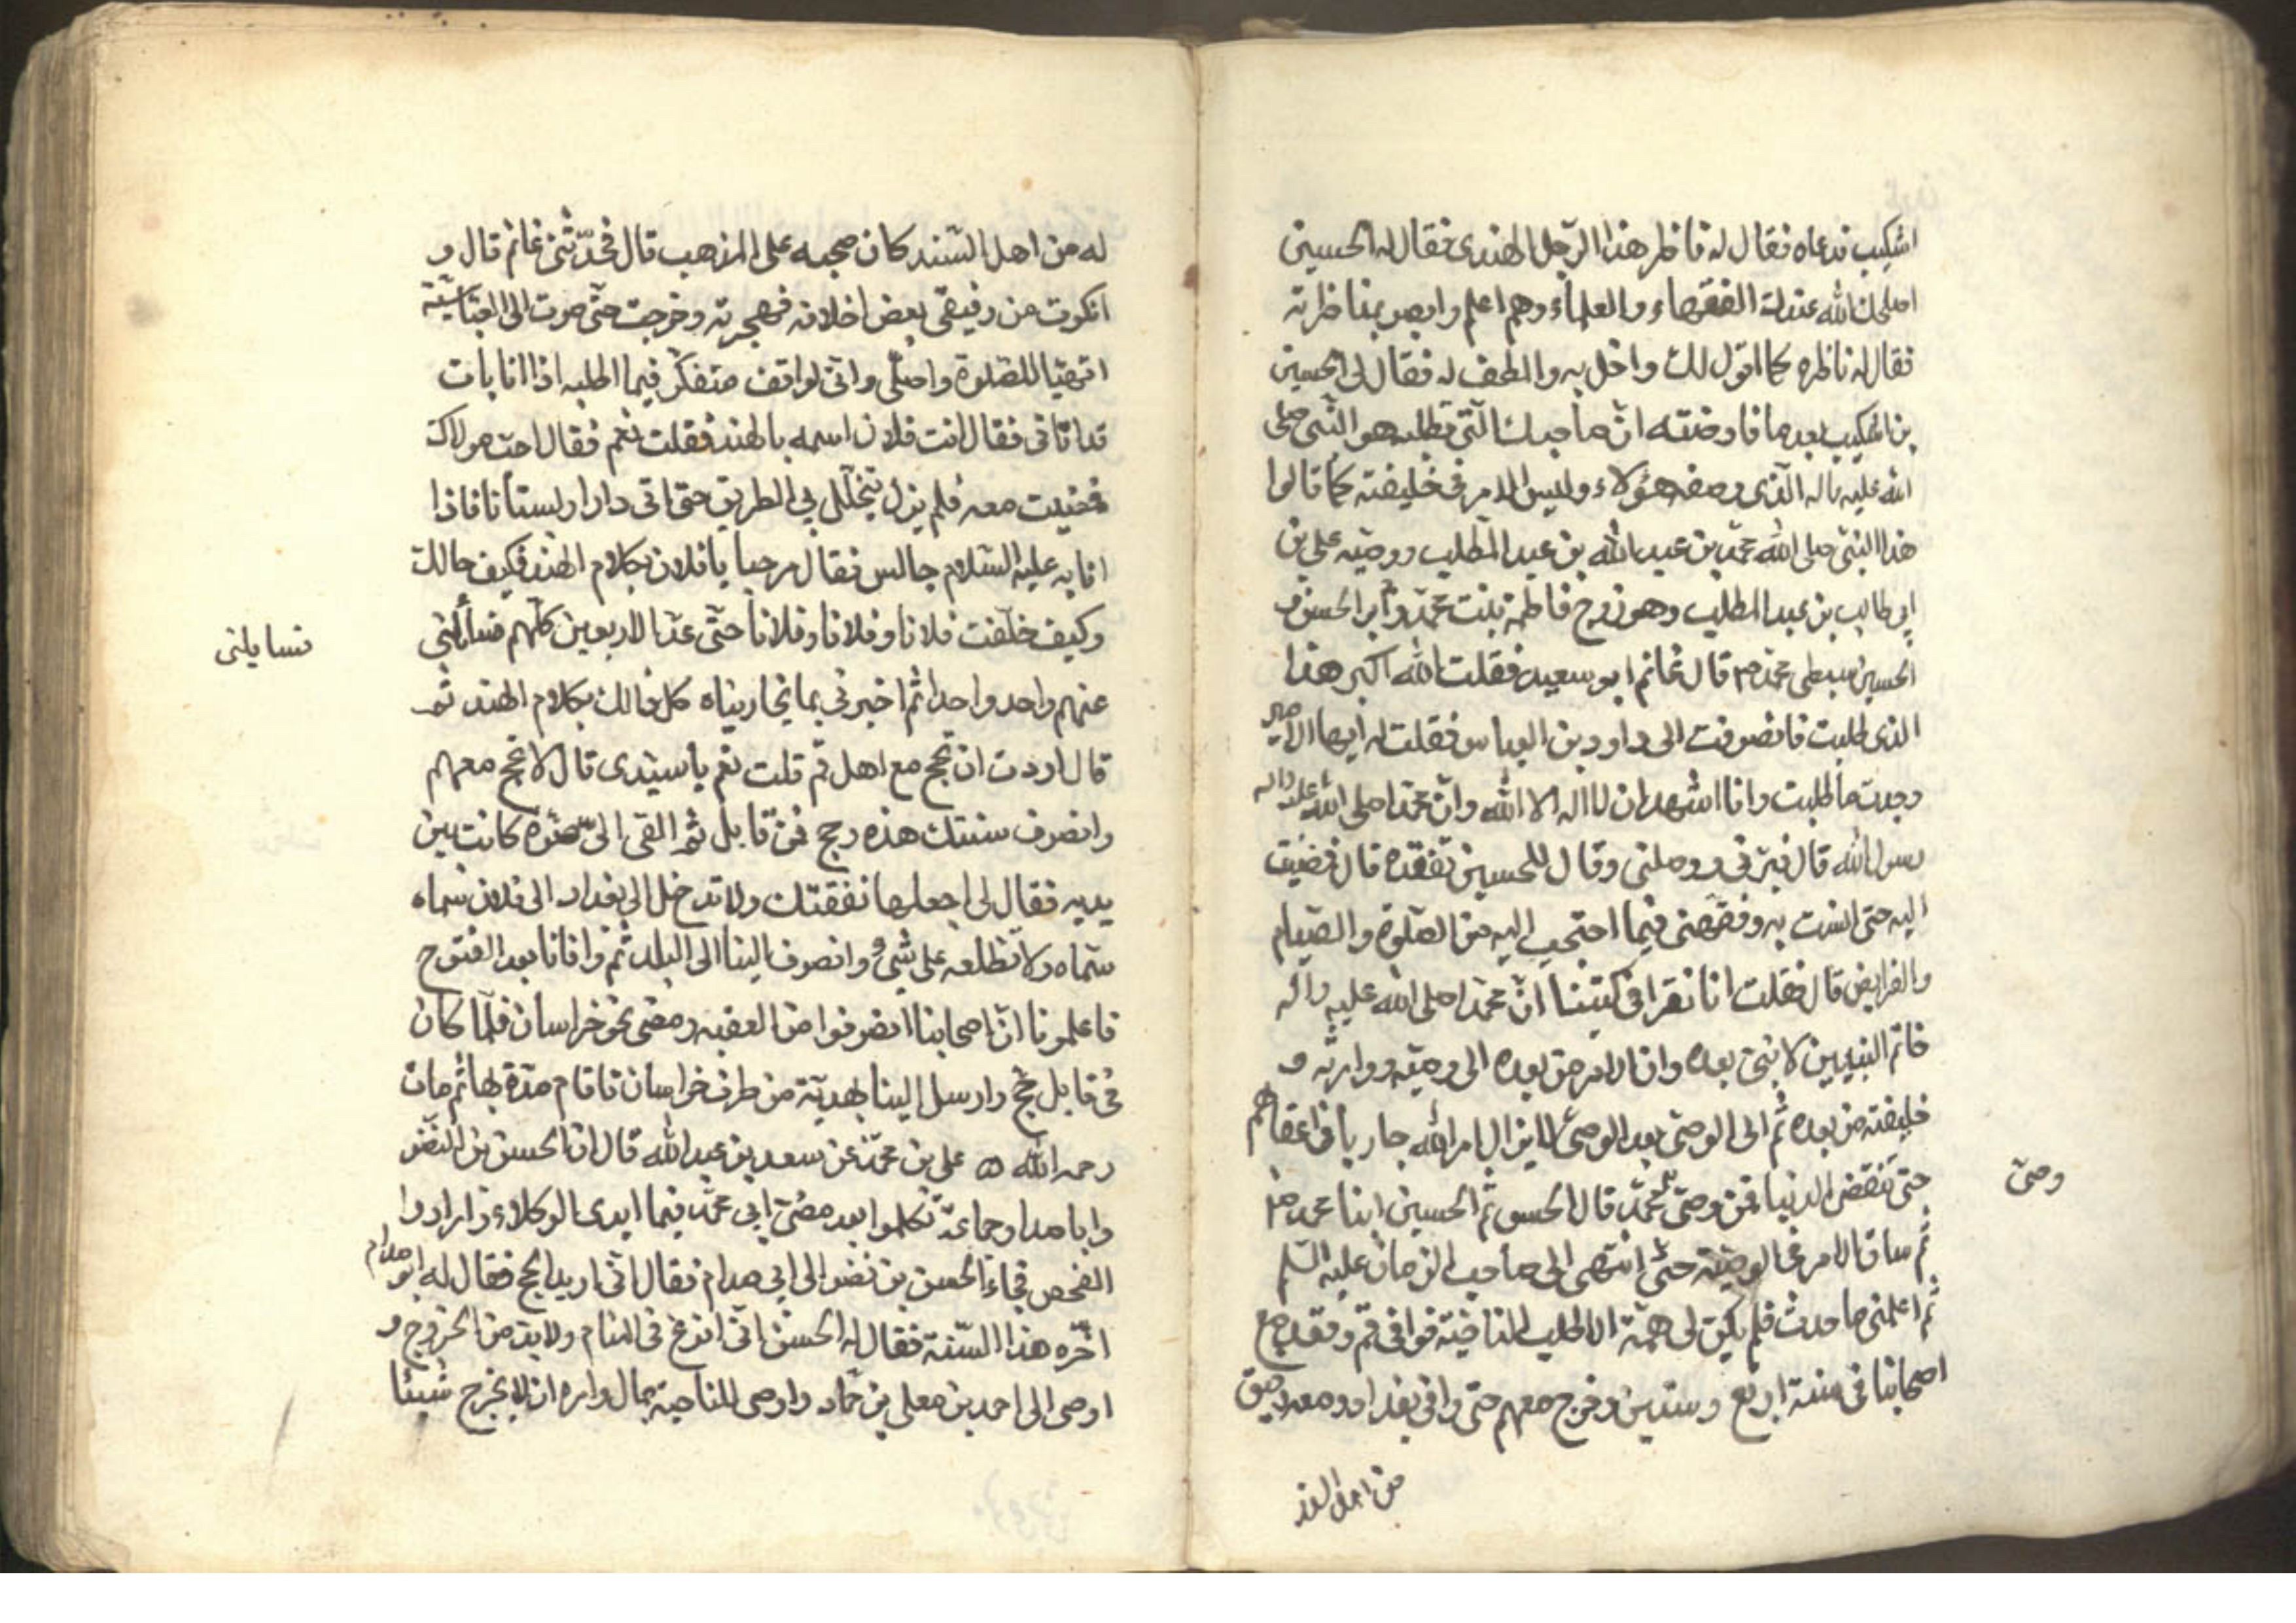 اشكيب فدعاه فقال له ناظر هذا الرجل الهندى فقال له الحسين
اصلحك الله عندك الفقهاء والعلماء وهم اعلم وابصر بمناظرته
فقال له ناظره كما اقول لك واخل به والطف له فقال لى الحسين
بن اشكيب بعد ما فاوضته ان صاحبك الذى تطلبه هو النبى صلى
الله عليه واله الذى وصفه هؤلاء وليس الامر فى خليفته كما قالوا
هذا النبى صلى الله محمد بن عبد الله بن عبد المطلب ووصيه على بن
ابى طالب بن عبد المطلب وهو زوج فاطمة بنت محمد وابو الحسن و
الحسين سبطى محمد ص قال غانم ابو سعيد فقلت الله اكبر هذا
الذى طلبت فانصرفت الى داود بن العباس فقلت له ايها الامير
وجدت ما طلبت وانا اشهد ان لا اله الا الله وان محمدا صلى الله عليه واله
رسول الله قال فبرنى ووصلنى وقال للحسين تفقده قال فمضيت
اليه حتى انست به وفقهنى فيما احتجب اليه من الصلوة والصيام
والفرايض قال فقلت انا نقرا فى كتبنا ان محمدا صلى الله عليه واله
خاتم النبيين لا نبى بعده وان الامر من بعده الى وصيه ووارثه و
خليفته من بعده ثم الى الوصى بعد الوصى لا يزال امر الله جاريا فى اعقابهم
حتى تنقضى الدنيا فمن وصى محمد قال الحسن ثم الحسين ابنا محمد ص
وصى
ثم ساق الامر فى الوصية حتى انتهى الى صاحب الزمان عليه السلم
ثم اعلمنى ما حدث فلم يكن لى همة الا طلب الناحية فوافى قم وقعد مع
اصحابنا فى سنة اربع وستين وخرج معهم حتى وافى بغداد ومعه رفيق
من اهل السند
له من اهل السند كان صحبه على المذهب قال فحدثنى غانم قال و
انكرت من رفيقى بعض اخلاقه فهجرته وخرجت حتى صرت الى العباسية
اتهيا للصلوة واصلى وانى لواقف متفكر فيما اطلبه اذا انا بات
قد اتانى فقال انت فلان اسمه بالهند فقلت نعم فقال اجب مولاك
فمضيت معه فلم يزل يتخلل بى الطريق حتى اتى دارا وبستانا فاذا
انا به عليه السلام جالس فقال مرحبا يا فلان بكلام الهند كيف حالك
وكيف خلفت فلانا وفلانا وفلانا حتى عد الاربعين كلهم فسألنى
نسايلنى
عنهم واحد واحدا ثم اخبرنى بما تجاريناه كل ذلك بكلام الهند ثم
قال اردت ان تحج مع اهل قم قلت نعم يا سيدى قال لا تحج معهم
وانصرف سنتك هذه وحج من قابل ثم القى الى صرة كانت بين
يديه فقال لى اجعلها نفقتك ولا تدخل الى بغداد الى فلان سماه
سماه ولا تطلعه على شئ وانصرف الينا الى البلد ثم وافانا بعد الفتوح
فاعلمونا ان اصحابنا انصرفوا من العقبه ومضى نحو خراسان فلما كان
فى قابل حج وارسل الينا بهدية من طرف خراسان فاقام مدة بها ثم مات
رحمه الله ه على بن محمد عن سعد بن عبد الله قال ان الحسن بن النضر
وابا صدام وجماعة تكلموا بعد مضى ابى محمد فيما ايدى الوكلاء وارادوا
الفحص فجاء الحسن بن نضر الى ابى صدام فقال انى اريد الحج فقال له ابو صدام
اخره هذا السنة فقال له الحسن انى افزع فى المنام ولا بد من الخروج و
اوصى الى احمد بن معلى بن حماد واوصى للناحية بمال وامره ان لا يخرج شيئا